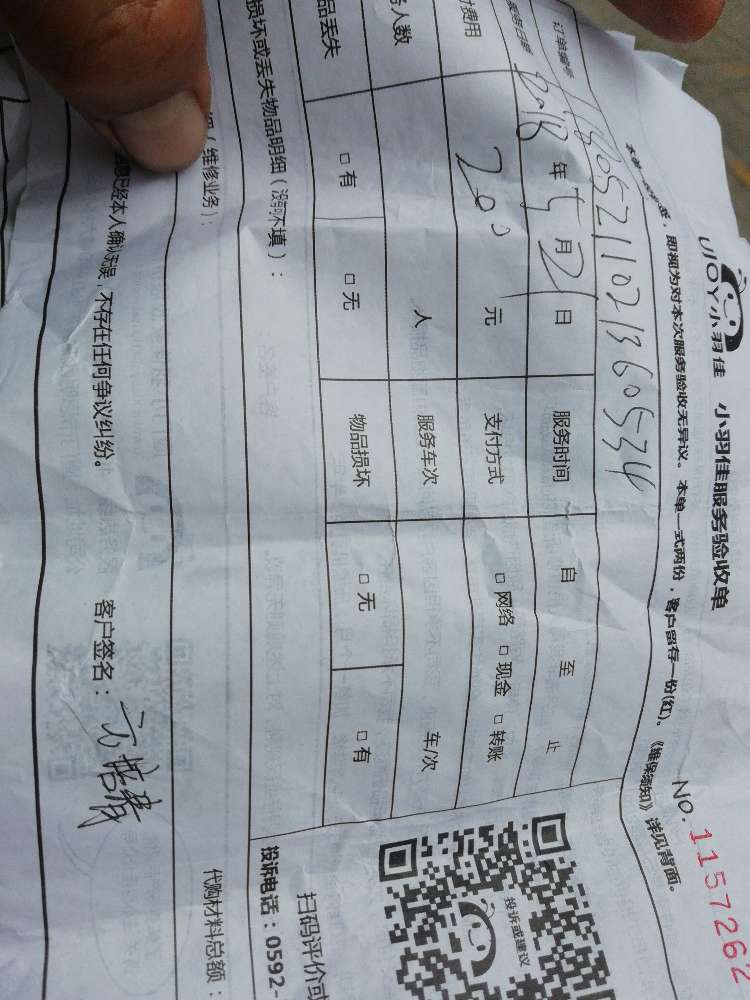 UJOY小羽佳 小羽佳服务验收单
NO. 1157262
即视为对本次服务验收无异议。本单一式两份，客户留存一份(红)。《维保须知》详见背面。
订单编号 1805211021360534
2018年5月21日 服务时间 自 至 止
费用 200元 支付方式 □网络 □现金 □转账
人数 人 服务车次 车/次
品丢失 □有 □无 物品损坏 □无 □有
损坏或丢失物品明细(没有不填)：
扫码评价或
投诉或建议
投诉电话：0592-
(维修业务)：
代购材料总额：
已经本人确认无误，不存在任何争议纠纷。 客户签名：